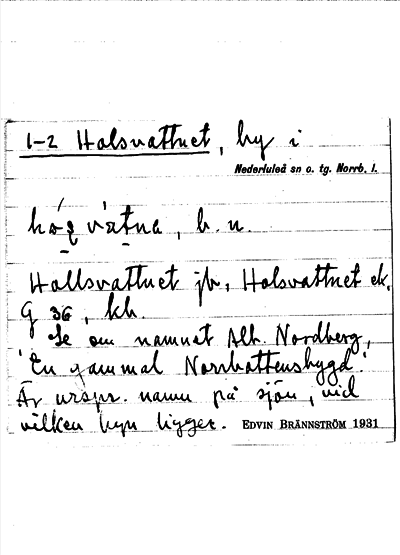 1-2 Halsvattnet, by i
Nederluleå sn o. tg. Norrb. l.
vàtna, b. n.
Hallsvattnet jb, Halsvattnet ek,
G 36, kh.
Se om namnet Alb. Nordberg,
"En gammal Norrbottensbygd".
Är urspr. namn på sjön, vid
vilken byn ligger. EDVIN BRÄNNSTRÖM 1931